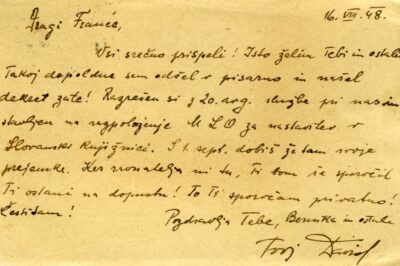 16. VIII. 48.
Dragi Francé,
Vsi srečno prispeli! Isto želim Tebi in ostalim
Takoj dopoldne sem odšel v pisarno in našel
dekret zate! Razrešen si z 20. avg. službe pri nas in
stavljen na razpoloženje MLO za nastavitev v
Slovanski knjižnici. S 1. sept. dobiš že tam svoje
prejemke. Ker ravnatelja ni tu, Ti bom že sporočil
Ti ostani na dopustu! To Ti sporočam privatno!
Čestitam!
Pozdravlja Tebe, Berenka in ostale
Tvoj